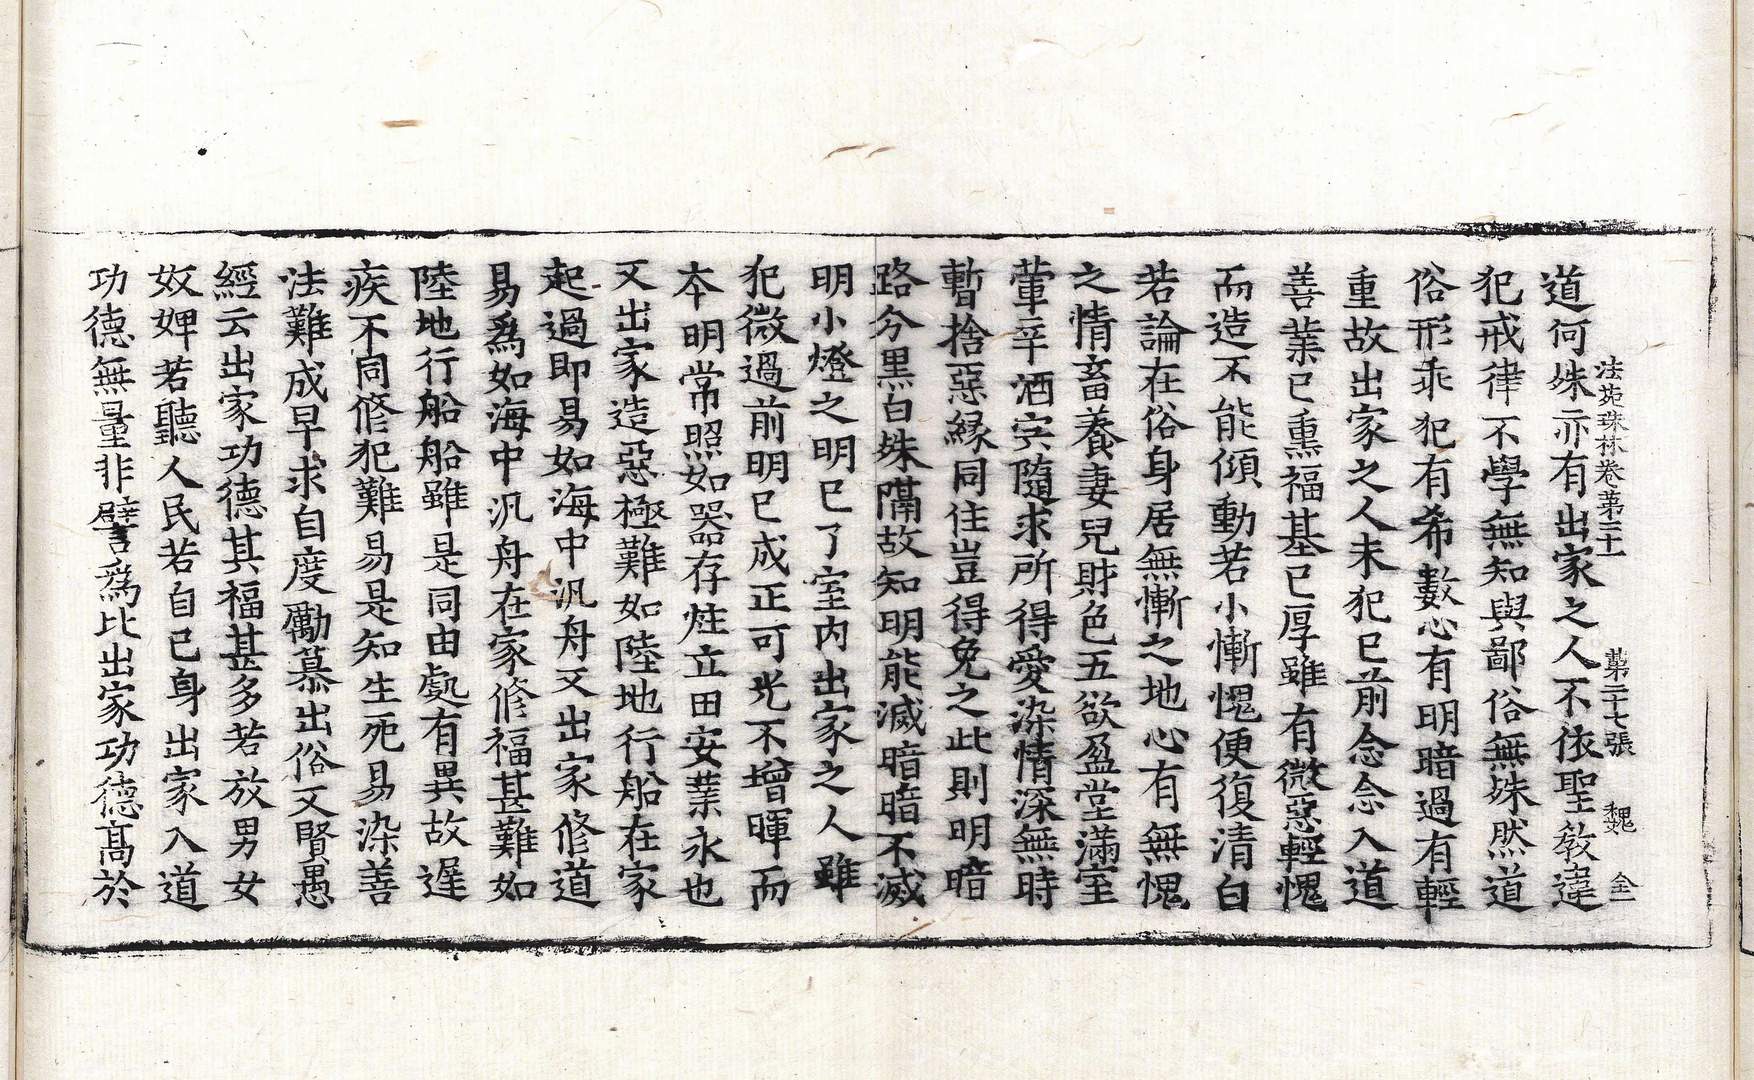 法苑珠林卷苐二十二 苐二十七張 魏
道何殊亦有出家之人不依聖教違
犯戒律不學無知與鄙俗無殊然道
俗形乖犯有希數心有明暗過有輕
重故出家之人未犯已前念念入道
善業已熏福基已厚雖有微惡輕愧
而造不能傾動若小慚愧便復清白
若論在俗身居無慚之地心有無愧
之情畜養妻兒財色五欲盈堂滿室
葷辛酒宍隨求所得愛染情深無時
暫捨惡緣同住豈得免之此則明暗
路分黑白殊隔故知明能滅暗暗不滅
明小燈之明已了室內出家之人雖
犯微過前明已成正可光不增暉而
本明常照如器存炷立田安業永也
又出家造惡極難如陸地行船在家
起過即易如海中汎舟又出家修道
易爲如海中汎舟在家修福甚難如
陸地行船船雖是同由處有異故遲
疾不同修犯難易是知生死易染善
法難成早求自度勵慕出俗又賢愚
經云出家功德其福甚多若放男女
奴婢若聽人民若自己身出家入道
功德無量非譬爲比出家功德高於